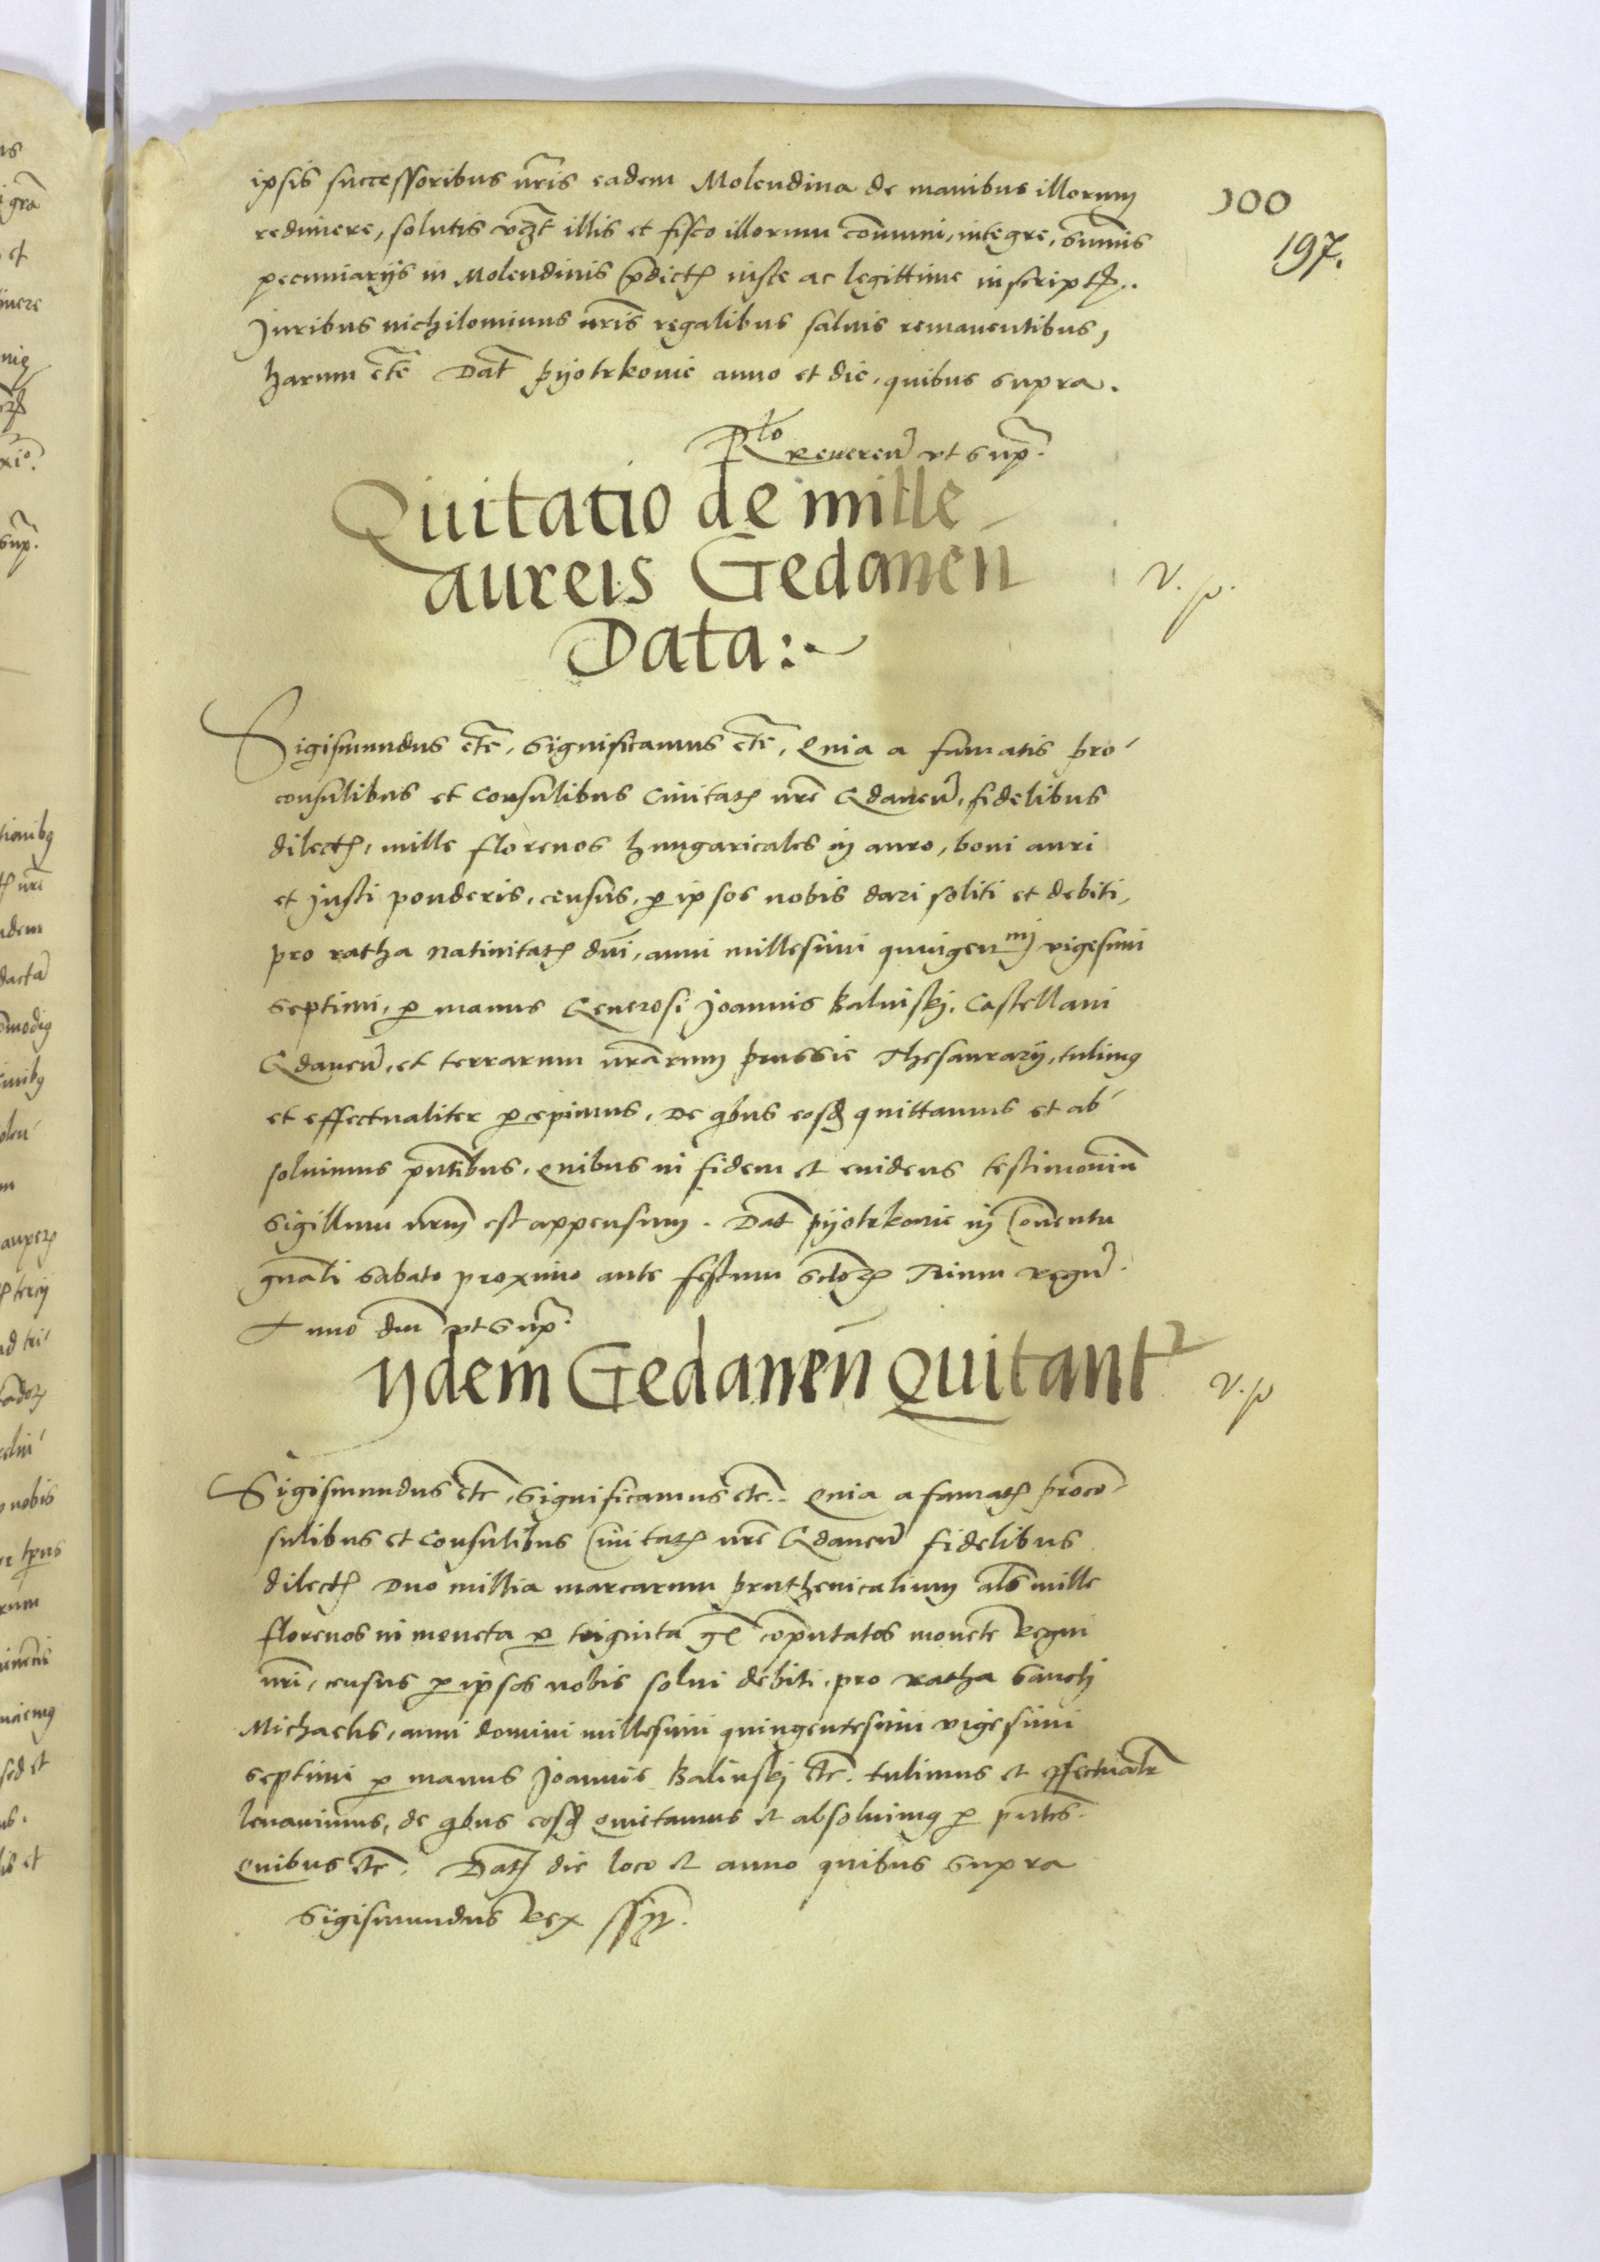 ipsis successoribus nr̃is eadem Molendina de manibus illorum
100
redimere, solutis vcʒt illis et fisco illorum com̃uni, integre, sum̃is
197.
pecuniarijs in Molendinis p̃dictꝭ iuste ac legittime inscriptꝭ..
Juribus nichilominus nr̃is regalibus saluis remanentibus,
harum etc̃ Dat̃ pyotrkouie anno et die, quibus supra.
Rlo reueren̄ vt sup̃.
Quitatio de mille
aureis Gedanen̄
v. p.
Data:
Sigismundus etc̃, Significamus etc̃, Quia a famatis pro
consulibus et Consulibus Ciuitatꝭ nr̃e Gdanen̄, fidelibus
dilectꝭ, mille florenos hungaricales in auro, boni auri
et justi ponderis, census, ꝑ ipsos nobis dari soliti et debiti,
pro ratha Natiuitatꝭ dn̄i, anni millesimi quingenmj vigesimi
septimi, ꝑ manus Generosi Joannis Balinskj, Castellani
Gdanen̄, et terrarum nr̃arum prussie Thesaurarij, tulimꝰ
et effectualiter ꝑcepimus, De qibus eosd̃ quittamus et ab
soluimus pn̄tibus, Quibus in fidem et euidens testimoniũ
Sigillum nr̃um est appensum. Dat̃ pyotrkouie in Conuentu
gn̄ali Sabato proximo ante festum Sctorꝝ Trium regũ.
Anno dn̄i vt Sup̃.
ydem Gedanen̄ Quitantr
v. p
Sigismundus etc̃, Significamus etc̃.. Quia a famatꝭ proco͂
sulibus et Consulibus Ciuitatꝭ nr̃e Gdanen̄ fidelibus
dilectꝭ Duo millia marcarum pruthenicalium als̃ mille
florenos in moneta ꝑ triginta gr̃ co͂putatos monete Regni
nr̃i, census ꝑ ipsos nobis solui debiti, pro ratha Sancti
Michaelis, anni domini millesimi quingentesimi vigesimi
septimi ꝑ manus Joannis Balinskj etc̃. tulimus et effectualr̃
leuauimus, de qibus eosd̃ Quietamus et absoluimꝰ ꝑ pn̄tes.
Quibus etc̃. Dat̃ die loco et anno quibus supra
Sigismundus Rex sst̃.